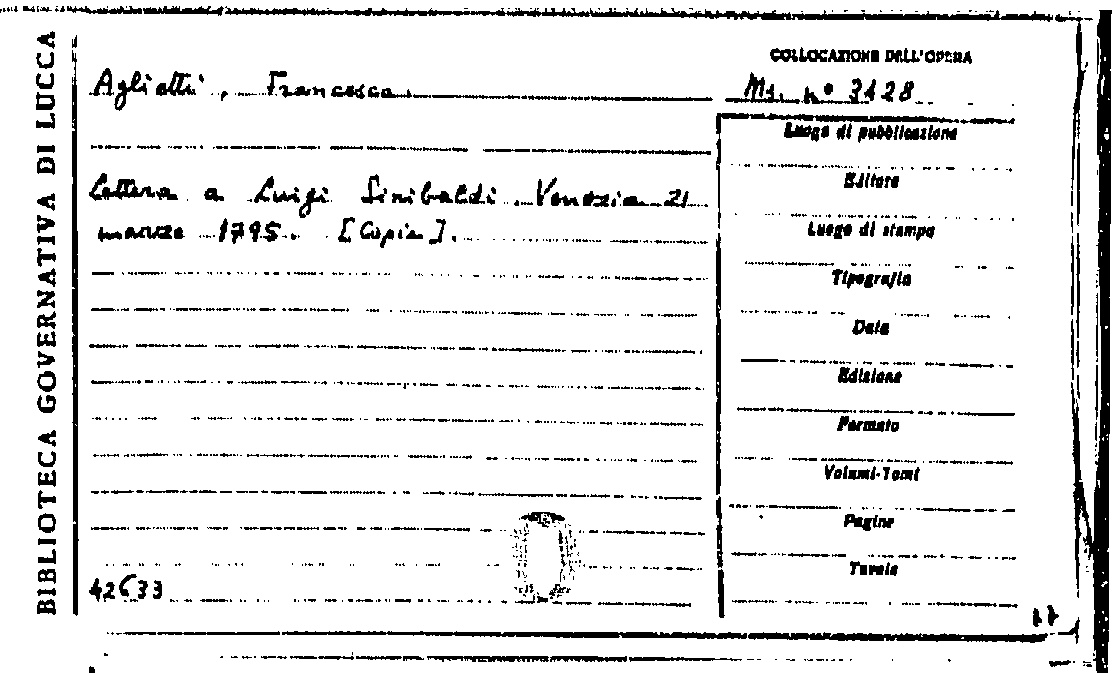 BIBLIOTECA GOVERNATIVA DI LUCCA
Aglietti, Francesco.
Lettera a Luigi Sinibaldi. Venezia 21
marzo 1795. [Copia].
42633
COLLOCAZIONE DELL'OPERA
Ms. n° 3128
Luogo di pubblicazione
Editore
Luogo di stampa
Tipografia
Data
Edizione
Formato
Volumi-Tomi
Pagine
Tavole